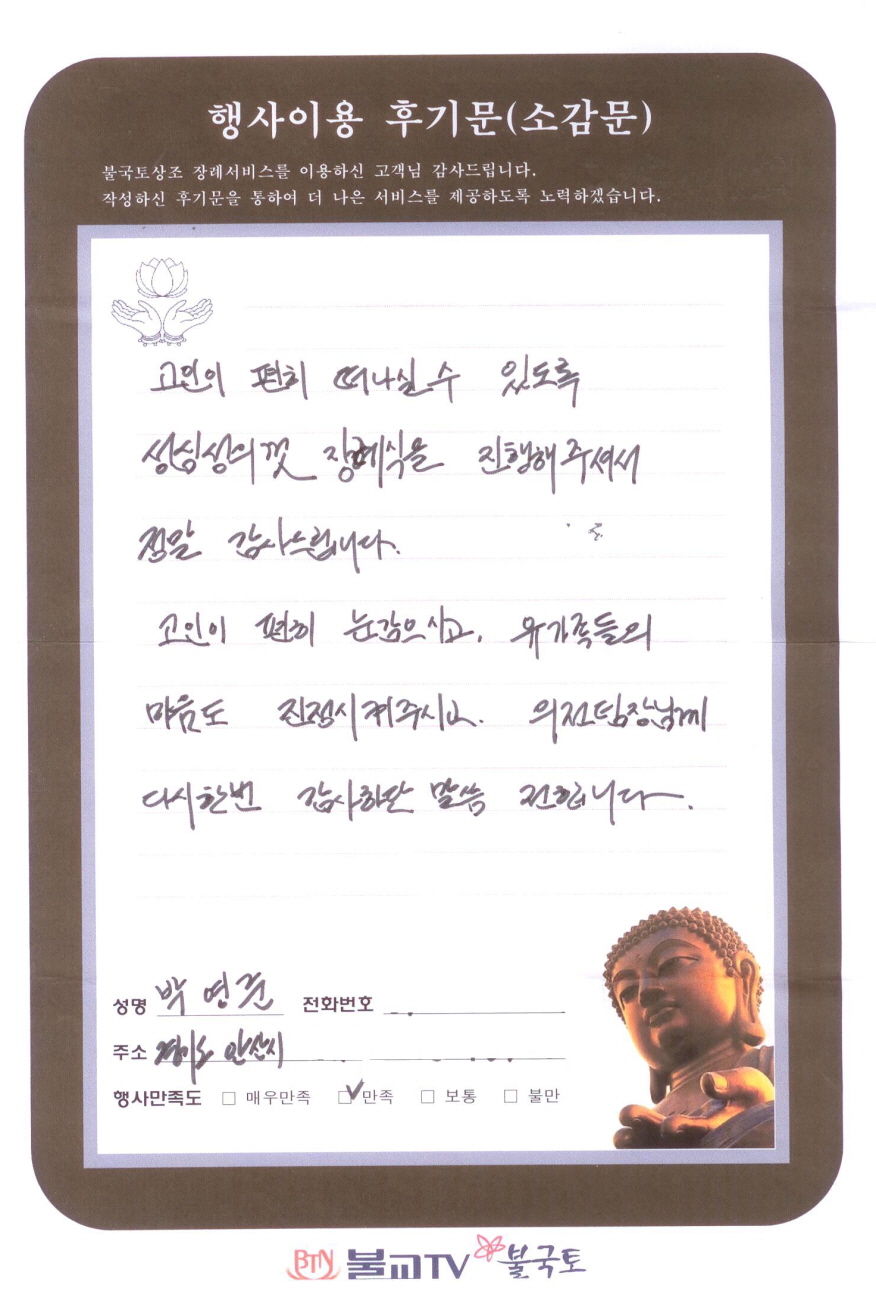 행사이용 후기문(소감문)
불국토상조 장례서비스를 이용하신 고객님 감사드립니다.
작성하신 후기문을 통하여 더 나은 서비스를 제공하도록 노력하겠습니다.
고인이 편히 떠나실 수 있도록
성심성의껏 장례식을 진행해주셔서
정말 감사드립니다.
고인이 편히 눈감으시고, 유가족들의
마음도 진정시켜주시고. 의전팀장님께
다시한번 감사하단 말씀 전합니다.
성명 박영준 전화번호
주소 경기도 안산시
행사만족도 □ 매우만족 ☑ 만족 □ 보통 □ 불만
BTN 불교TV 불국토